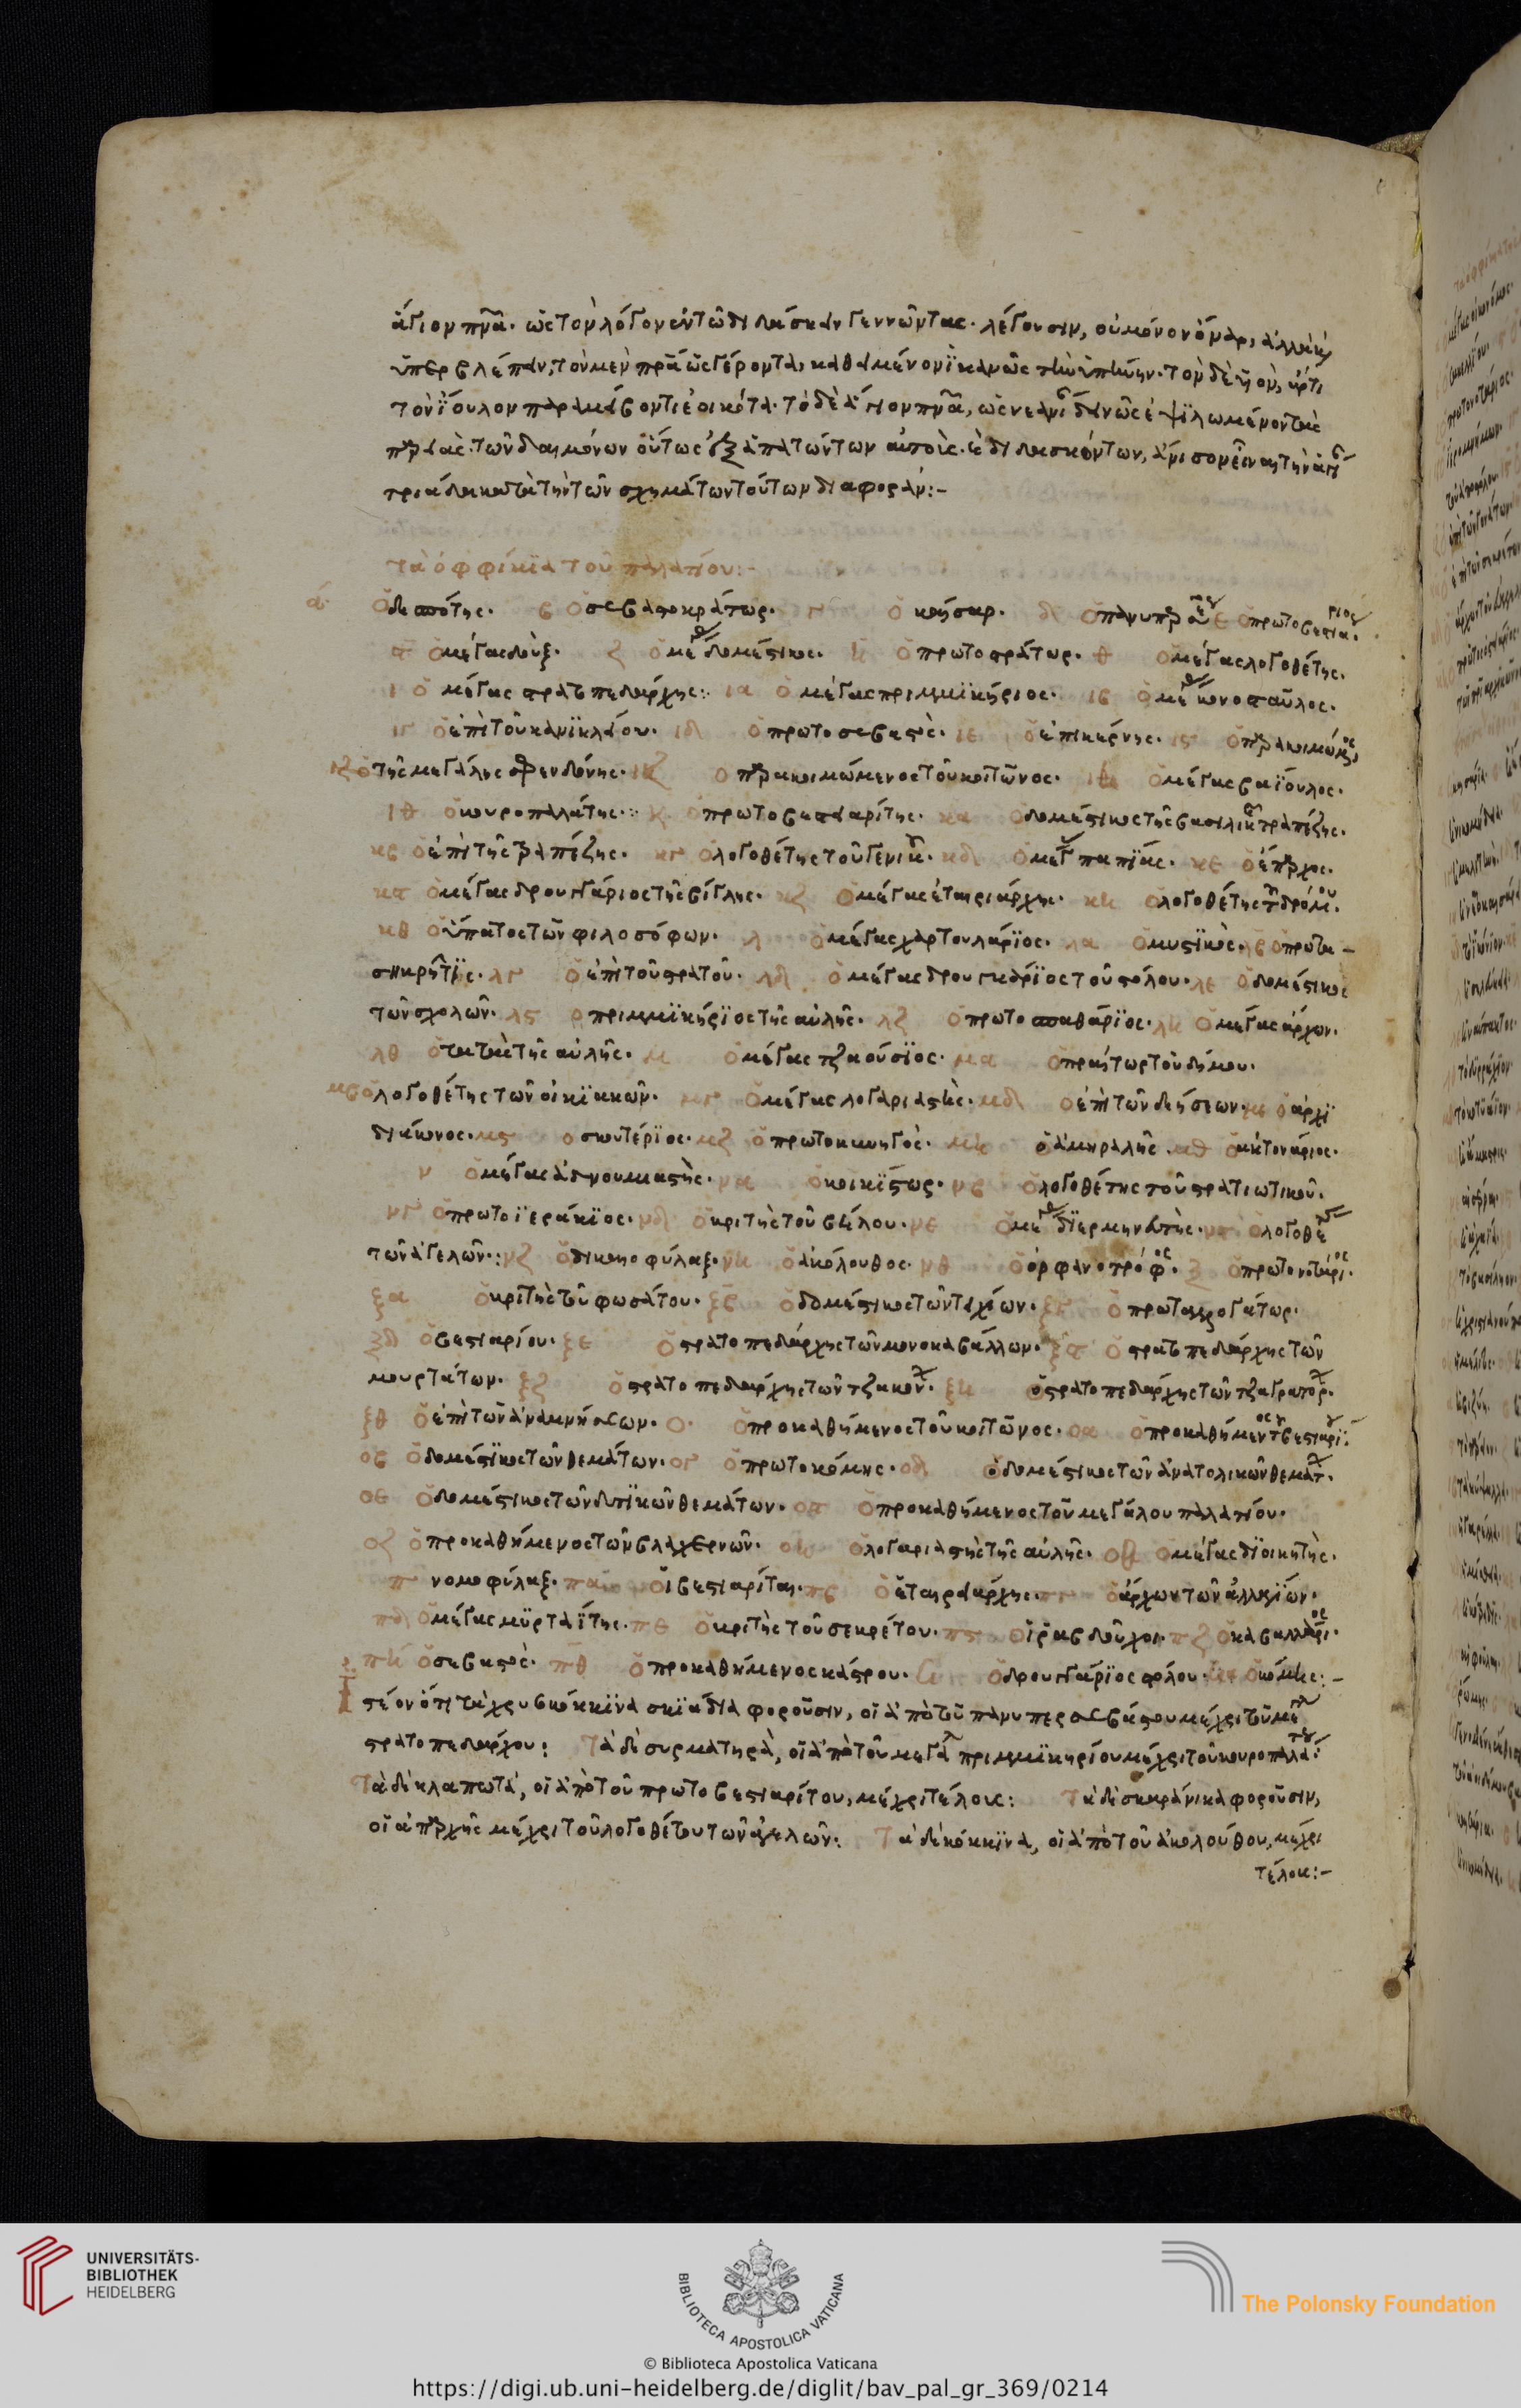 ἅγιον πνᾶ. ὡς τὸν λόγον ἐν τῶ διδάσκειν γεννῶντας. λέγουσιν, οὐ μόνον ὄναρ, ἀλλὰ καὶ
ὕπερ βλέπειν, τὸν μὲν πρᾶ ὡς γέροντα, καθειμένον ἱκανῶς τὴν ὑπήνην. τὸν δὲ υἱὸν, ἄρτι
τὸν ἴουλον παραμείβοντι ἐοικότα. τὸ δὲ ἅγιον πνᾶ, ὡς νεανί δεινῶς ἐψιλωμένον τὰς
παρειάς. τῶν δαιμόνων οὕτως ἐξαπατώντων αὐτοὺς. καὶ διδασκόντων, ἄνισον εἶναι τὴν ἁγί
τριάδα κατὰ τὴν τῶν σχημάτων τούτων διαφοράν:-
τὰ ὀφφίκια τοῦ παλατίου:-
α ὁ δεσπότης. β ὁ σεβαστοκράτωρ. γ ὁ καῖσαρ. δ ὁ πανυπερσέ ε ὁ πρωτοβεστιάριος
ϛ ὁ μέγας δοὺξ. ζ ὁ μέ δομέστικος. η ὁ πρωτοστράτωρ. θ ὁ μέγας λογοθέτης.
ι ὁ μέγας στρατοπεδάρχης: ια ὁ μέγας πριμμικήριος. ιβ ὁ μέ κονοσταῦλος.
ιγ ὁ ἐπὶ τοῦ κανικλείου. ιδ ὁ πρωτοσεβαστὸς. ιε ὁ ἐπικέρνης. ιϛ ὁ παρακοιμώμενος
ὁ τῆς μεγάλης σφενδόνης. ιζ ὁ παρακοιμώμενος τοῦ κοιτῶνος. ιη ὁ μέγας βαϊουλος.
ιθ ὁ κουροπαλάτης: κ ὁ πρωτοβεστιαρίτης. κα ὁ δομέστικος τῆς βασιλικ τραπέζης.
κβ ὁ ἐπὶ τῆς τραπέζης. κγ ὁ λογοθέτης τοῦ γενικ. κδ ὁ μέγ παπίας. κε ὁ ἔπαρχος.
κϛ ὁ μέγας δρουγγάριος τῆς βίγλης. κζ ὁ μέγας ἑταιριάρχης. κη ὁ λογοθέτης τ δρόμου.
κθ ὁ ὕπατος τῶν φιλοσόφων. λ ὁ μέγας χαρτουλάριος. λα ὁ μυστικὸς. λβ ὁ πρωτα-
σηκρῆτις. λγ ὁ ἐπὶ τοῦ στρατοῦ. λδ ὁ μέγας δρουγγάριος τοῦ στόλου. λε ὁ δομέστικος
τῶν σχολῶν. λϛ ὁ πριμμικήριος τῆς αὐλῆς. λζ ὁ πρωτοσπαθάριος. λη ὁ μέγας ἄρχων.
λθ ὁ τατὰς τῆς αὐλῆς. μ ὁ μέγας τζαούσιος. μα ὁ πραίτωρ τοῦ δήμου.
μβ ὁ λογοθέτης τῶν οἰκιακῶν. μγ ὁ μέγας λογαριαστὴς. μδ ὁ ἐπὶ τῶν δεήσεων. με ὁ ἀρχι
διάκονος. μϛ ὁ σκουτέριος. μζ ὁ πρωτοκυνηγὸς. μη ὁ ἀμηραλῆς. μθ ὁ κτονάριος.
ν ὁ μέγας ἀδνουμιαστὴς. να ὁ κοικίστωρ. νβ ὁ λογοθέτης τοῦ στρατιωτικοῦ.
νγ ὁ πρωτοϊεράκιος. νδ ὁ κριτὴς τοῦ βήλου. νε ὁ μέ διερμηνευτὴς. νϛ ὁ λογοθέ
τῶν ἀγελῶν: νζ ὁ δικαιοφύλαξ. νη ὁ ἀκόλουθος. νθ ὁ ὀρφανοτρόφος. ξ ὁ πρωτονοτάριος.
ξα ὁ κριτὴς τοῦ φωσάτου. ξβ ὁ δομέστικος τῶν τειχέων. ξγ ὁ πρωταλλογάτωρ.
ξδ ὁ βεστιαρίου. ξε ὁ στρατοπεδάρχης τῶν μονοκαβάλλων. ξϛ ὁ στρατοπεδάρχης τῶν
μουρτάτων. ξζ ὁ στρατοπεδάρχης τῶν τζακόν. ξη ὁ στρατοπεδάρχης τῶν τζαγρατορ.
ξθ ὁ ἐπὶ τῶν ἀναμνήσεων. ο ὁ προκαθήμενος τοῦ κοιτῶνος. οα ὁ προκαθήμενος τ βεστιαρί
οβ ὁ δομέστικος τῶν θεμάτων. ογ ὁ πρωτοκόμης. οδ ὁ δομέστικος τῶν ἀνατολικῶν θεμάτ.
οε ὁ δομέστικος τῶν δυτικῶν θεμάτων. οϛ ὁ προκαθήμενος τοῦ μεγάλου παλατίου.
οζ ὁ προκαθήμενος τῶν βλαχερνῶν. οη ὁ λογαριαστὴς τῆς αὐλῆς. οθ ὁ μέγας διοικητὴς.
π νομοφύλαξ. πα οἱ βεστιαρίται. πβ ὁ ἑταιρειάρχης. πγ ὁ ἄρχων τῶν ἀλλαγίων.
πδ ὁ μέγας μυρταΐτης. πε ὁ κριτὴς τοῦ σεκρέτου. πϛ οἱ ῥαβδοῦχοι. πζ ὁ καβαλλάριος.
πη ὁ σεβαστὸς. πθ ὁ προκαθήμενος κάστρου. ὁ δρουγγάριος στόλου. ὁ κόμης:-
Ιστέον ὅτι τὰ χρυσοκόκκινα σκιάδια φοροῦσιν, οἱ ἀπὸ τοῦ πανυπερσεβάστου μέχρι τοῦ μέ
στρατοπεδάρχου: Τὰ δὲ συρματηρὰ, οἱ ἀπὸ τοῦ μεγά πριμμικηρίου μέχρι τοῦ κουροπαλά
Τὰ δὲ κλαπωτὰ, οἱ ἀπὸ τοῦ πρωτοβεστιαρίτου, μέχρι τέλους: Τὰ δὲ σκαράνικα φοροῦσιν,
οἱ ἀπαρχῆς μέχρι τοῦ λογοθέτου τῶν ἀγελῶν: Τὰ δὲ κόκκινα, οἱ ἀπὸ τοῦ ἀκολούθου, μέχρι
τέλους:-
UNIVERSITÄTS-
BIBLIOTHEK
HEIDELBERG
BIBLIOTECA APOSTOLICA VATICANA
The Polonsky Foundation
© Biblioteca Apostolica Vaticana
https://digi.ub.uni-heidelberg.de/diglit/bav_pal_gr_369/0214